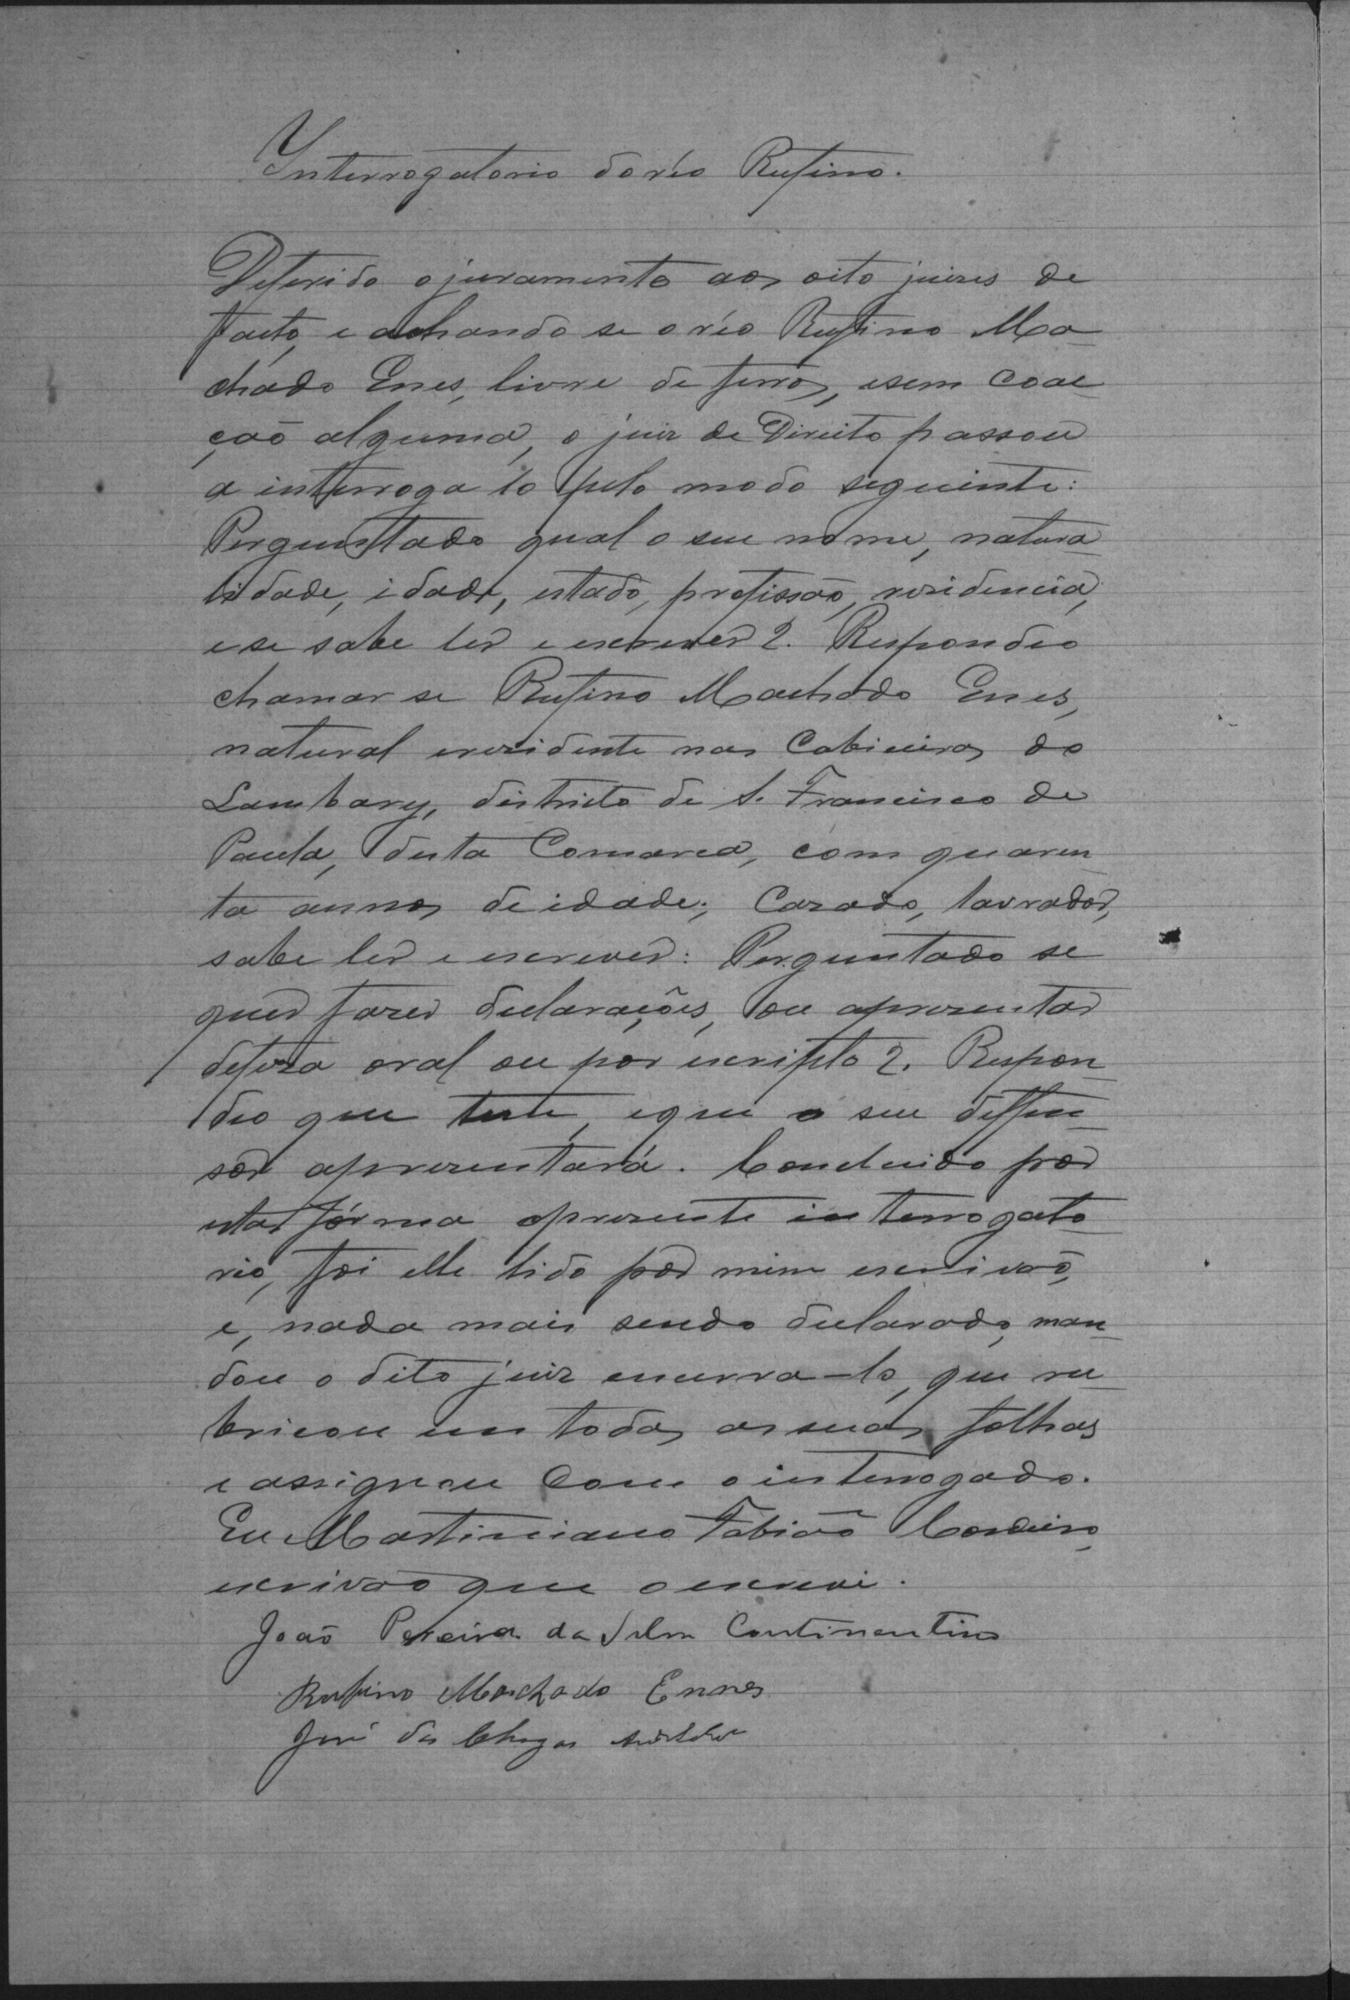 Interrogatorio do réo Rufino.
Deferido o juramento aos oito juizes de
facto, e achando se o réo Rufino Ma-
chado Enes, livre de ferros, e sem coac-
ção alguma, o juiz de Direito passou
a interroga lo pelo modo seguinte:
Perguntado qual o seu nome, natura-
lidade, idade, estado, profissão, rezidencia,
e se sabe ler e escrever?. Respondeo
chamar se Rufino Machado Enes,
natural e rezidente nas Cabiceiras do
Lambary, districto de S. Francisco de
Paula, desta Comarca, com quaren-
ta annos de idade; Cazado, lavrador,
sabe ler e escrever: Perguntado se
quer fazer declarações, ou aprezentar
defeza oral ou por escripto?. Respon-
deo que tem, e que o seu deffen-
sor aprezentará. Concluido por
esta fórma o prezente interrogato-
rio, foi elle lido por mim escrivão,
e, nada mais sendo declarado, man-
dou o dito juiz encerra-lo, que ru-
bricou em todas as suas folhas
e assignou com o interrogado.
Eu Martiniano Fabião Cordeiro,
escrivão que o escrevi.
João Pereira da Silva Continentino
Rufino Machado Ennes
José das Chagas